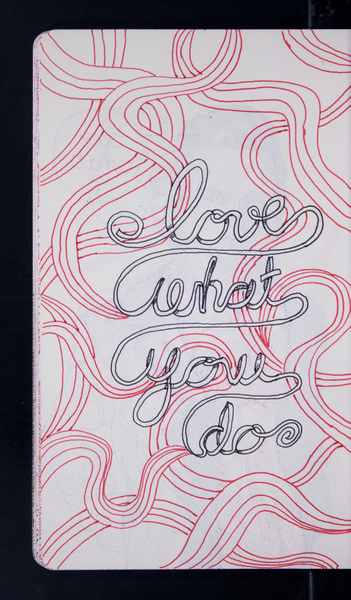 love
what
you
do